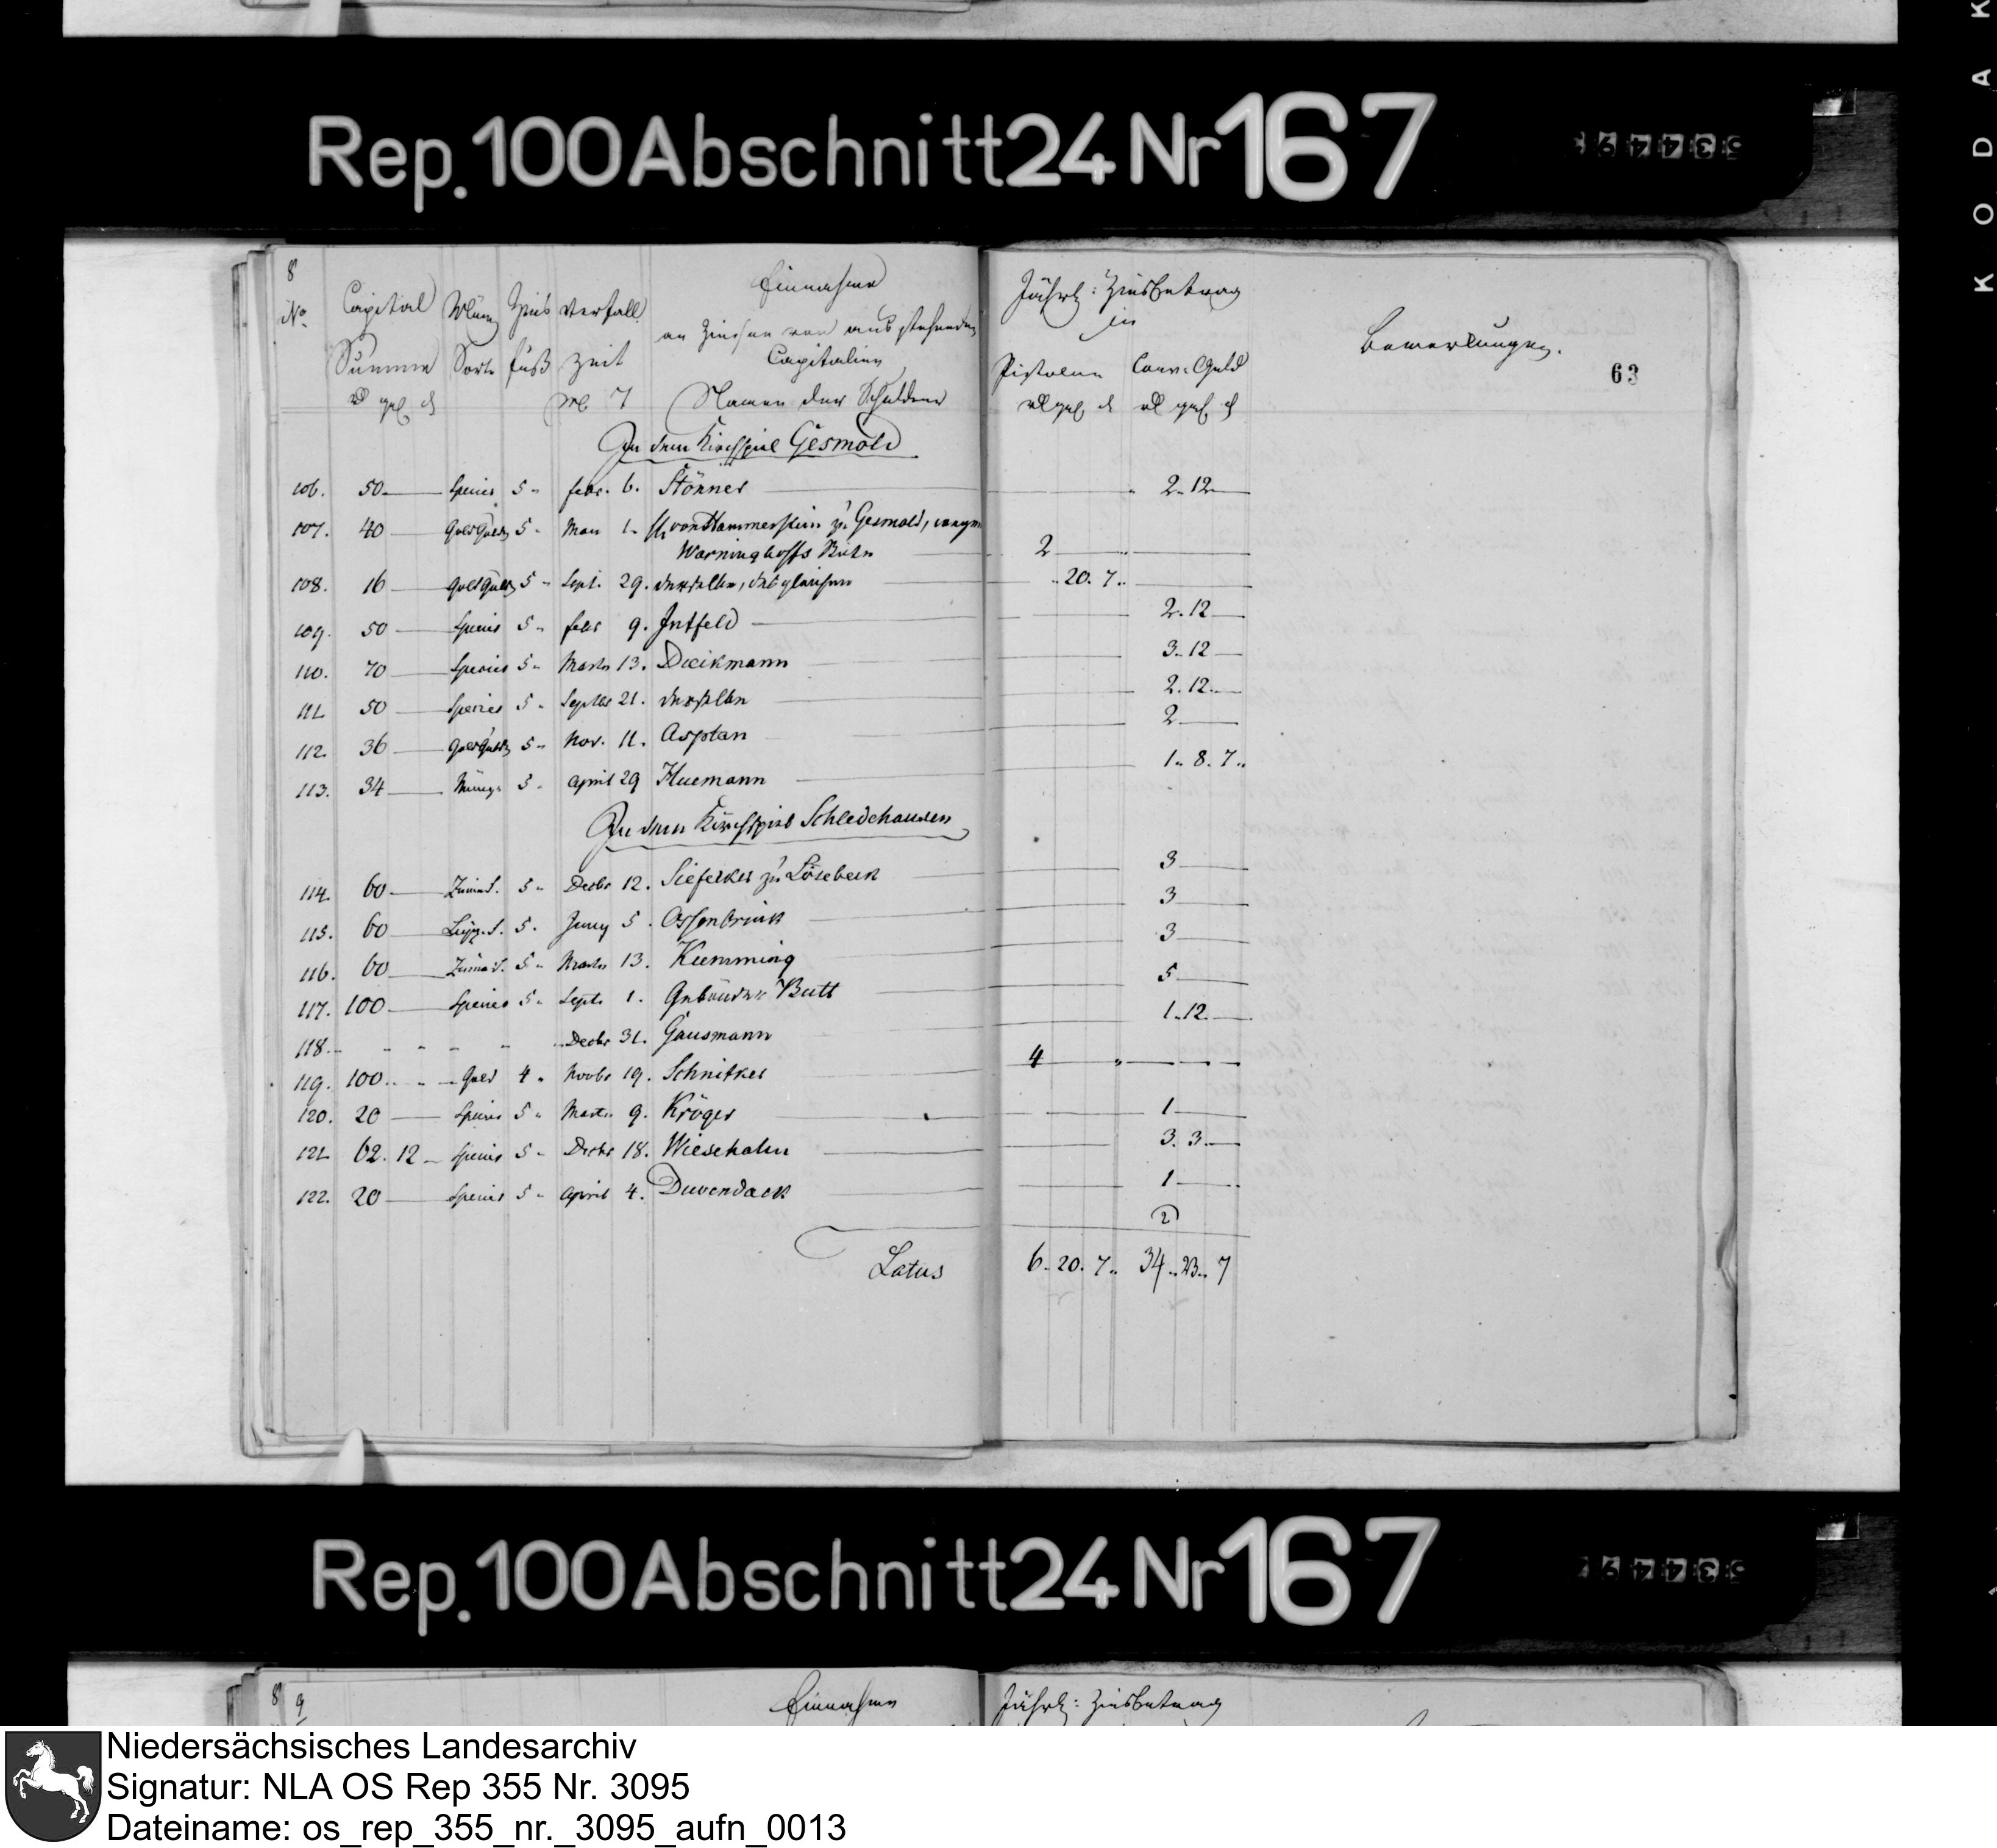 KODAK
Rep.100 Abschnitt 24 Nr 167
8
Einnahme
No. Capital Münz Zins Verfall
an Zinsen von ausstehenden
Summe Sorte fuß Zeit Capitalien
Namen der Schuldner
Jährl: Zinsbetrag
in
Pistolen Conv. Geld
Bemerkungen.
63
In dem Kirchspiel Gesmold
106. 50 Species 5 Febr. 6. Stönner 2. 12
107. 40 Goldguld 5 May 1. von Hammerstein zu Gesmold,
Warninghoffs 2
108. 16 Goldguld 5 Sept. 29. derselbe, desgleichen 20. 7
109. 50 Species 5 Febr 9. Intfeld 2. 12
110. 70 Species 5 Martz 13. Dieikmann 3. 12
111. 50 Species 5 Septbr 21. derselbe 2. 12
112. 36 Goldguld 5 Nov. 11. Asplan 2
113. 34 Münze 5 April 29 Huemann 1. 8. 7
In dem Kirchspiel Schledehausen
114. 60 5 Decbr 12. Siefecker zu Lösebeck 3
115. 60 5 Juny 5. Ossenbrink 3
116. 60 5 Martz 13. Kemming 3
117. 100 Species 5 Sept. 1. Gebrüder Butt 5
118. Decbr 31. Gausmann 1. 12
119. 100 Gold 4 Novbr 19. Schnitker 4
120. 20 Species 5 Martz 9. Kröger 1
121. 62. 12 Species 5 Decbr 18. Wiesehahn 3. 3
122. 20 Species 5 April 4. Duvendack 1
2
Latus 6. 20. 7 34. 23. 7
Rep.100 Abschnitt 24 Nr 167
8 9 Einnahme Jährl: Zinsbetrag
Niedersächsisches Landesarchiv
Signatur: NLA OS Rep 355 Nr. 3095
Dateiname: os_rep_355_nr._3095_aufn_0013